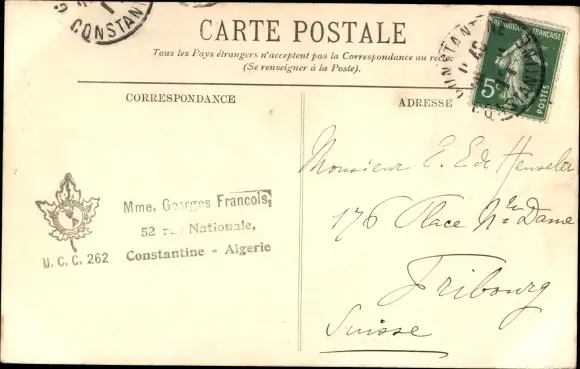 CONSTANTINE
CARTE POSTALE
Tous les Pays étrangers n'acceptent pas la Correspondance au recto
(Se renseigner à la Poste).
RÉPUBLIQUE FRANÇAISE
5c
POSTES
CORRESPONDANCE
ADRESSE
Monsieur E. E. de Henseler
176 Place Nre Dame
Fribourg
Suisse
Mme. Georges Francois,
52 rue Nationale,
Constantine - Algerie
U.C.C. 262